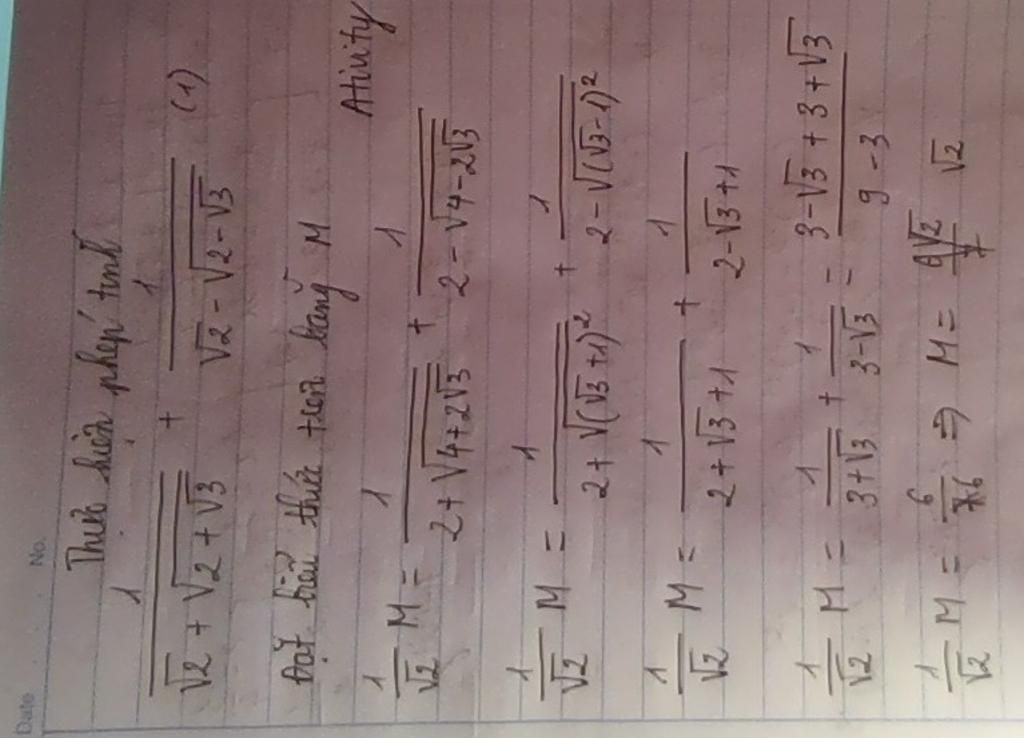 Date No.
Thực hiện phép tính
1/(√2 + √(2 + √3)) + 1/(√2 - √(2 - √3)) (1)
Đặt biểu thức trên bằng M
Atinity
1/√2 M = 1/(2 + √(4 + 2√3)) + 1/(2 - √(4 - 2√3))
1/√2 M = 1/(2 + √((√3 + 1)²)) + 1/(2 - √((√3 - 1)²))
1/√2 M = 1/(2 + √3 + 1) + 1/(2 - √3 + 1)
1/√2 M = 1/(3 + √3) + 1/(3 - √3) = (3 - √3 + 3 + √3)/(9 - 3)
1/√2 M = 6/6 ⇒ M = √2